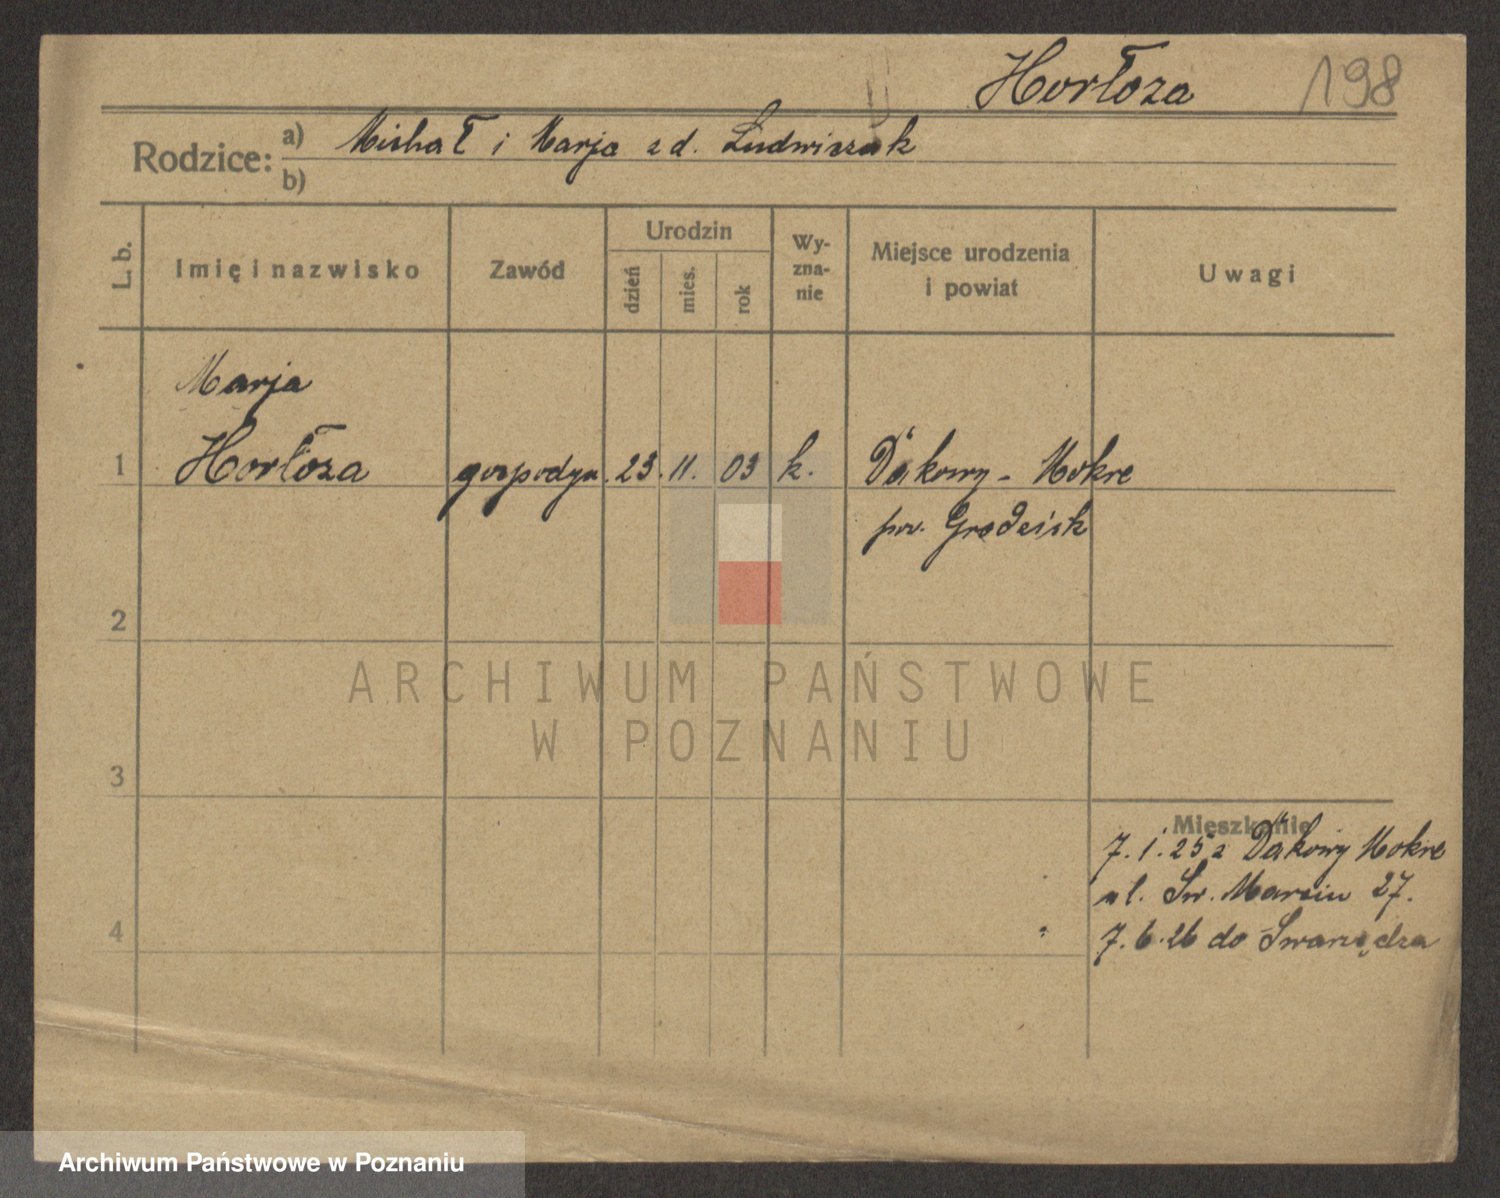 Horłoza 198
Rodzice: a) Michał i Marja z d. Ludwiczak
b)
L. b. Imię i nazwisko Zawód Urodzin dzień mies. rok Wy-zna-nie Miejsce urodzenia i powiat Uwagi
Marja
1 Horłoza gospodyn. 23. 11. 03 k. Dakowy - Mokre
pow. Grodzisk
2
ARCHIWUM PAŃSTWOWE
W POZNANIU
3
Mieszkanie
7. 1. 25 z Dakowy Mokre
ul. Św. Marcin 27.
4 7. 6. 26 do Swarzędza
Archiwum Państwowe w Poznaniu